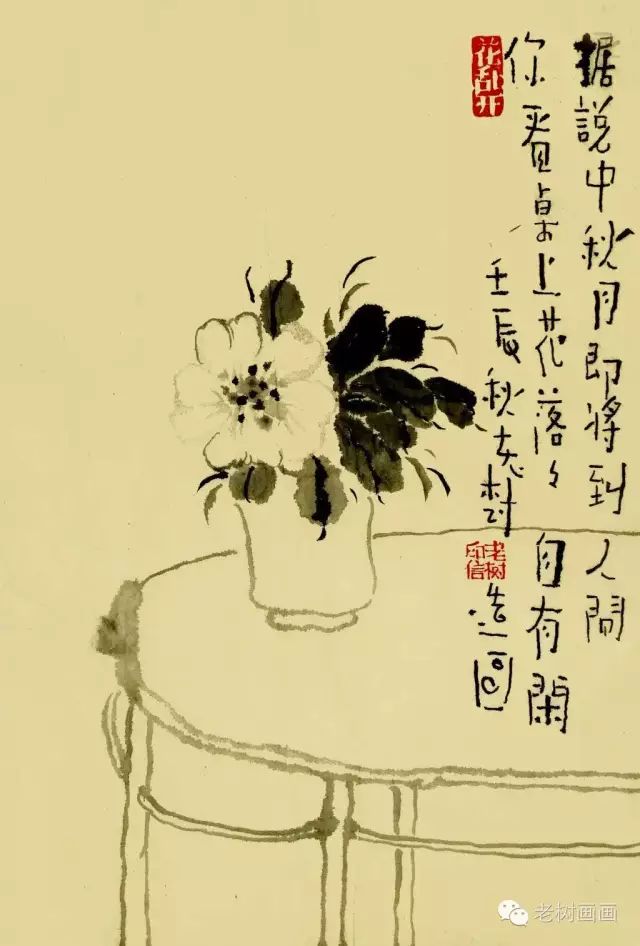 据説中秋月即将到人間
你看桌上花落々自有閑
壬辰秋老树造図
花乱开
老树
印信
老树画画